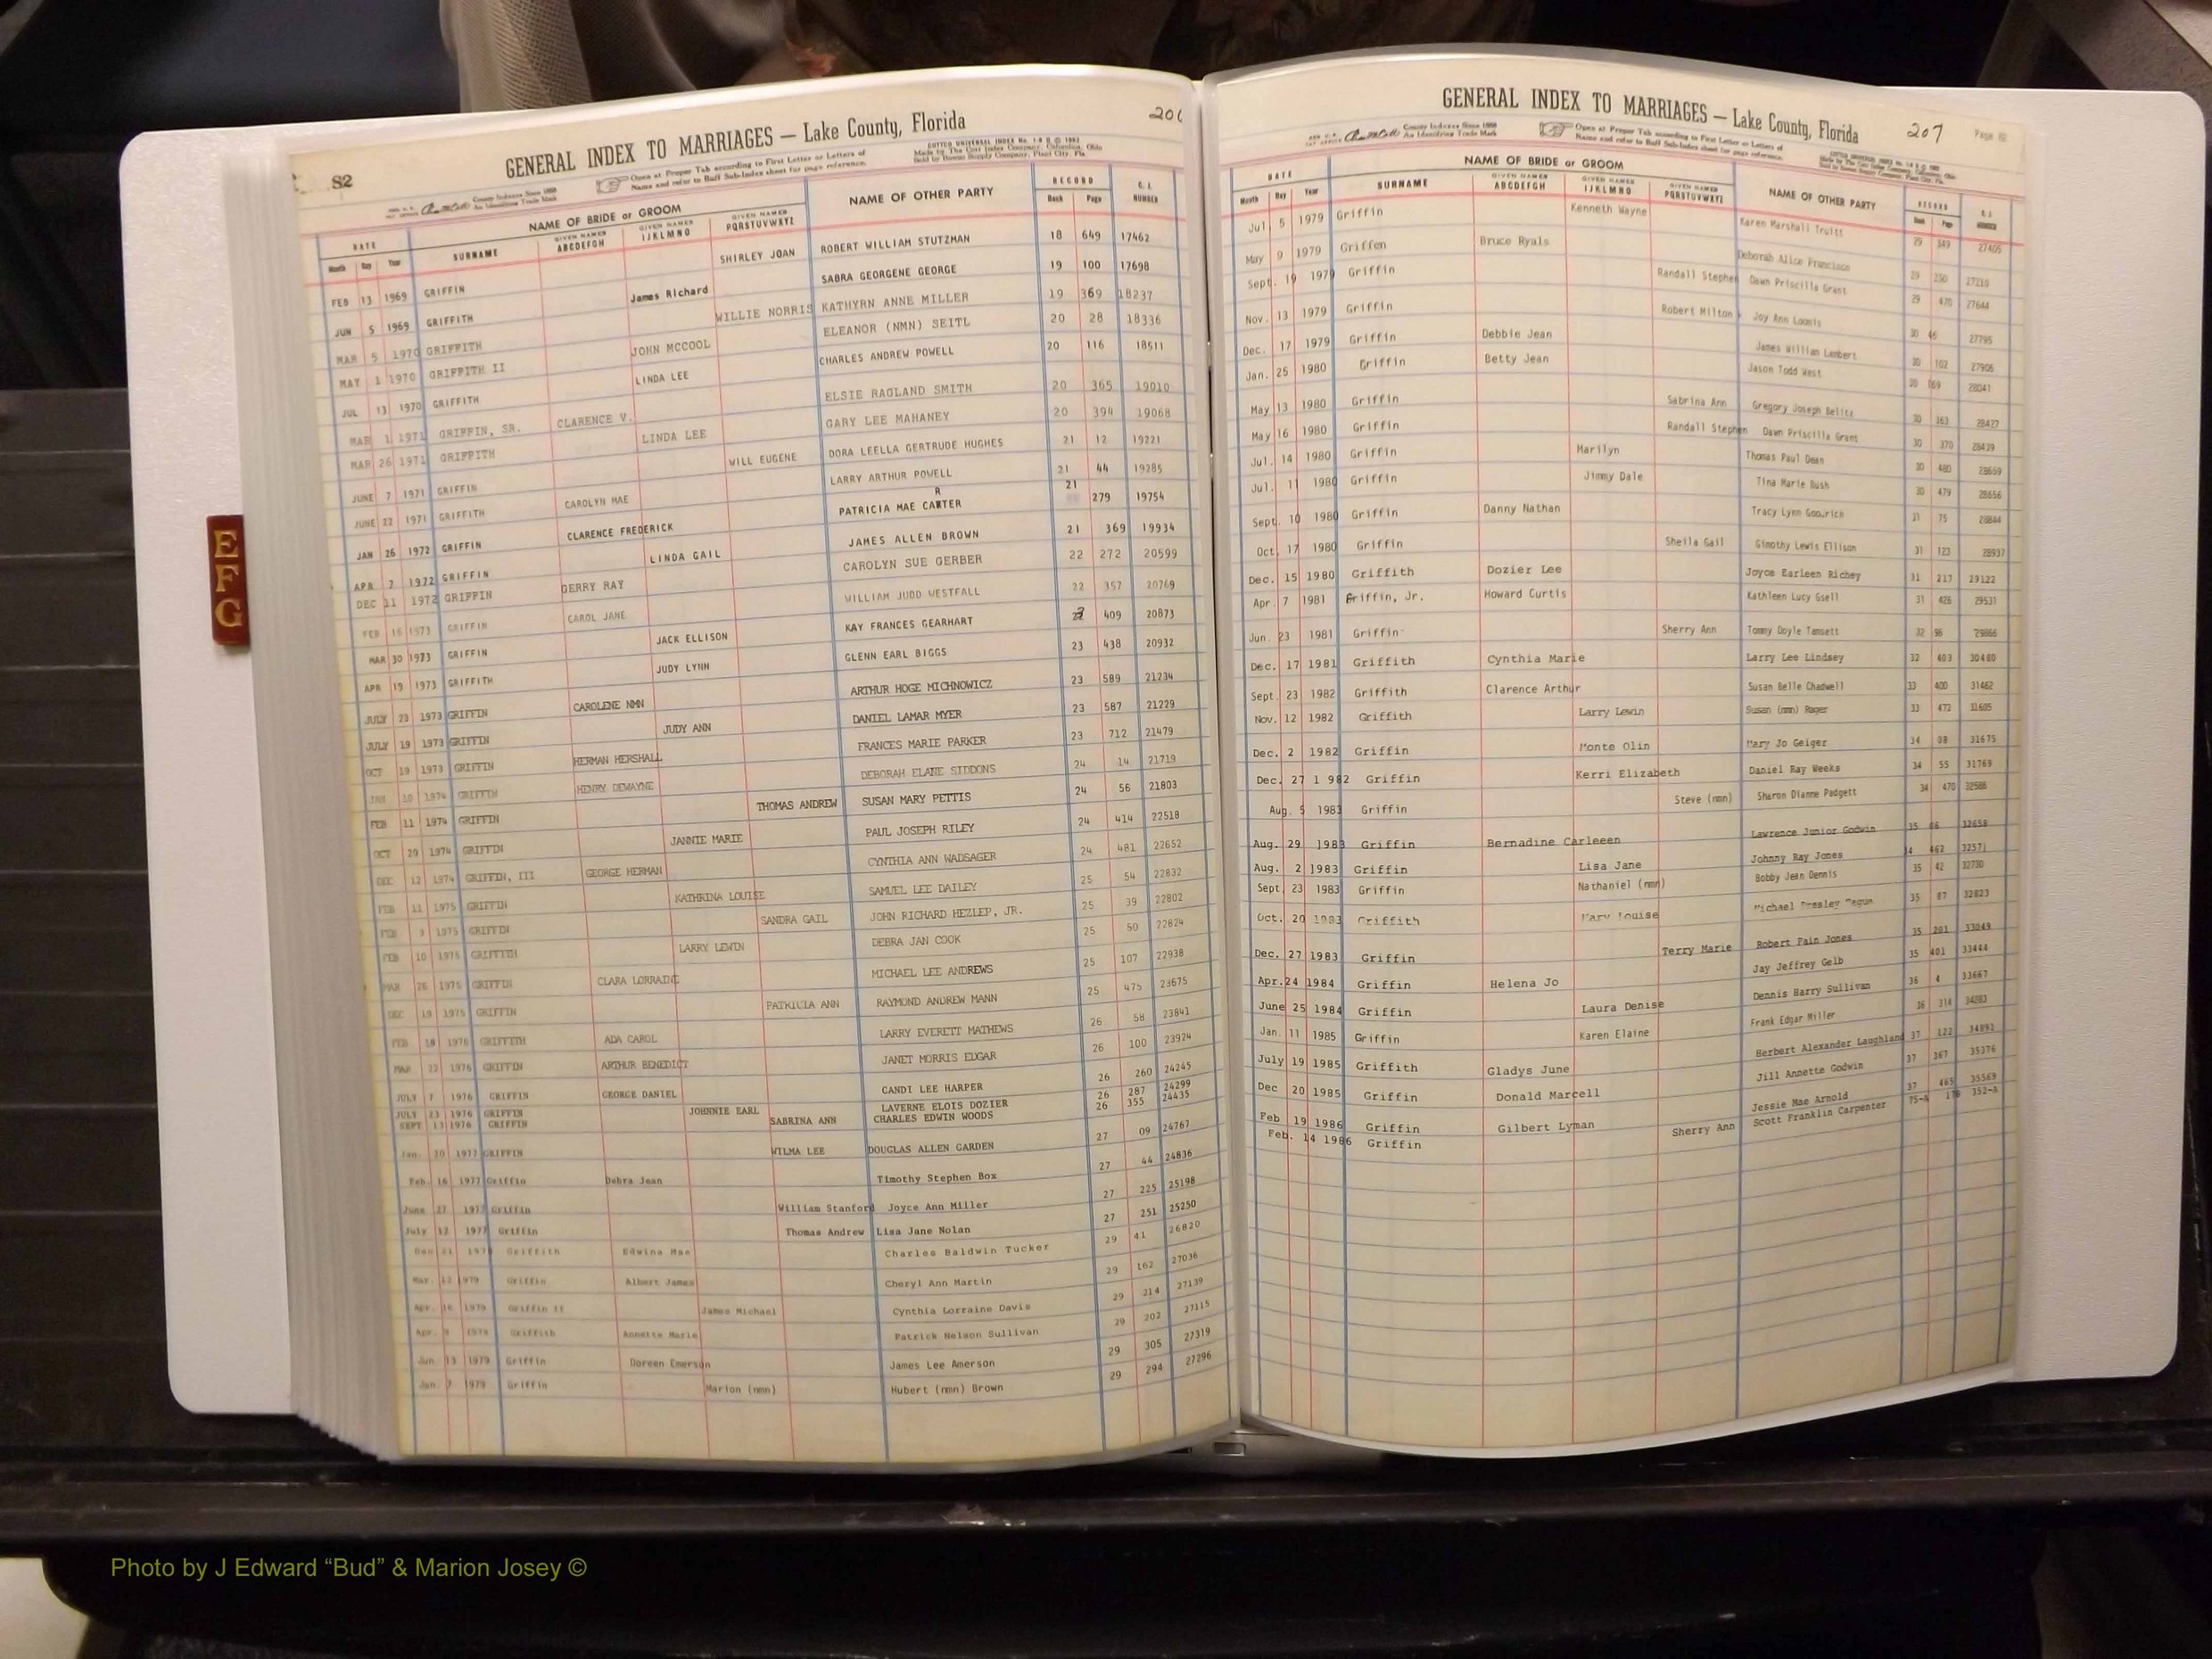 GENERAL INDEX TO MARRIAGES — Lake County, Florida
S2
County Indexes Since 1888
An Identifying Trade Mark
Open at Proper Tab according to First Letter or Letters of
Name and refer to Buff Sub-Index sheet for page reference.
Made by The Cott Index Company, Columbus, Ohio
DATE NAME OF BRIDE or GROOM NAME OF OTHER PARTY RECORD
Month Day Year SURNAME GIVEN NAMES ABCDEFGH GIVEN NAMES IJKLMNO GIVEN NAMES PQRSTUVWXYZ Book Page NUMBER
FEB 13 1969 GRIFFIN SHIRLEY JOAN ROBERT WILLIAM STUTZMAN 18 649 17462
JUN 5 1969 GRIFFITH James Richard SABRA GEORGENE GEORGE 19 100 17698
MAR 5 1970 GRIFFITH WILLIE NORRIS KATHYRN ANNE MILLER 19 369 18237
MAY 1 1970 GRIFFITH II JOHN MCCOOL ELEANOR (NMN) SEITL 20 28 18336
JUL 13 1970 GRIFFITH LINDA LEE CHARLES ANDREW POWELL 20 116 18511
MAR 1 1971 GRIFFIN, SR. CLARENCE V. ELSIE RAGLAND SMITH 20 365 19010
MAR 26 1971 GRIFFITH LINDA LEE GARY LEE MAHANEY 20 394 19068
JUNE 7 1971 GRIFFIN WILL EUGENE DORA LEELLA GERTRUDE HUGHES 21 12 19221
JUNE 22 1971 GRIFFITH CAROLYN MAE LARRY ARTHUR POWELL 21 44 19285
JAN 26 1972 GRIFFIN CLARENCE FREDERICK PATRICIA MAE CARTER 21 279 19754
APR 7 1972 GRIFFIN LINDA GAIL JAMES ALLEN BROWN 21 369 19934
DEC 11 1972 GRIFFIN GERRY RAY CAROLYN SUE GERBER 22 272 20599
FEB 16 1973 GRIFFIN CAROL JANE WILLIAM JUDD WESTFALL 22 357 20769
MAR 30 1973 GRIFFIN JACK ELLISON KAY FRANCES GEARHART 409 20873
APR 19 1973 GRIFFITH JUDY LYNN GLENN EARL BIGGS 23 438 20932
JULY 23 1973 GRIFFIN CAROLENE NMN ARTHUR HOGE MICHNOWICZ 23 589 21234
JULY 19 1973 GRIFFIN JUDY ANN DANIEL LAMAR MYER 23 587 21229
OCT 19 1973 GRIFFIN HERMAN HERSHALL FRANCES MARIE PARKER 23 712 21479
JAN 10 1974 GRIFFIN HENRY DEWAYNE DEBORAH ELANE SIDDONS 24 14 21719
FEB 11 1974 GRIFFIN THOMAS ANDREW SUSAN MARY PETTIS 24 56 21803
OCT 29 1974 GRIFFIN JANNIE MARIE PAUL JOSEPH RILEY 24 414 22518
DEC 12 1974 GRIFFIN, III GEORGE HERMAN CYNTHIA ANN WADSAGER 24 481 22652
FEB 11 1975 GRIFFIN KATHRINA LOUISE SAMUEL LEE DAILEY 25 54 22832
FEB 3 1975 GRIFFIN SANDRA GAIL JOHN RICHARD HEZLEP, JR. 25 39 22802
FEB 10 1975 GRIFFITH LARRY LEWIN DEBRA JAN COOK 25 50 22824
MAR 26 1975 GRIFFIN CLARA LORRAINE MICHAEL LEE ANDREWS 25 107 22938
DEC 19 1975 GRIFFIN PATRICIA ANN RAYMOND ANDREW MANN 25 475 23675
FEB 18 1976 GRIFFITH ADA CAROL LARRY EVERETT MATHEWS 26 58 23841
MAR 22 1976 GRIFFIN ARTHUR BENEDICT JANET MORRIS EDGAR 26 100 23924
JULY 7 1976 GRIFFIN GEORGE DANIEL CANDI LEE HARPER 26 260 24245
JULY 23 1976 GRIFFIN JOHNNIE EARL LAVERNE ELOIS DOZIER 26 287 24299
SEPT 13 1976 GRIFFIN SABRINA ANN CHARLES EDWIN WOODS 26 355 24435
Jan. 20 1977 GRIFFIN WILMA LEE DOUGLAS ALLEN GARDEN 27 09 24767
Feb. 16 1977 Griffin Debra Jean Timothy Stephen Box 27 44 24836
June 27 1977 Griffin William Stanford Joyce Ann Miller 27 225 25198
July 12 1977 Griffin Thomas Andrew Lisa Jane Nolan 27 251 25250
Griffith Edwina Mae Charles Baldwin Tucker 29 41 26820
Mar. 12 1979 Griffin Albert James Cheryl Ann Martin 29 162 27036
Apr. 16 1979 Griffin II James Michael Cynthia Lorraine Davis 29 214 27139
Apr. 9 1979 Griffith Annette Marie Patrick Nelson Sullivan 29 202 27115
Jun 13 1979 Griffin Doreen Emerson James Lee Amerson 29 305 27319
Jun. 7 1979 Griffin Marion (nmn) Hubert (nmn) Brown 29 294 27296
GENERAL INDEX TO MARRIAGES — Lake County, Florida
207
County Indexes Since 1888
An Identifying Trade Mark
Open at Proper Tab according to First Letter or Letters of
Name and refer to Buff Sub-Index sheet for page reference.
DATE NAME OF BRIDE or GROOM NAME OF OTHER PARTY RECORD
Month Day Year SURNAME GIVEN NAMES ABCDEFGH GIVEN NAMES IJKLMNO GIVEN NAMES PQRSTUVWXYZ Book Page NUMBER
Jul 5 1979 Griffin Kenneth Wayne Karen Marshall Truitt 29 349 27405
May 9 1979 Griffen Bruce Ryals Deborah Alice Francisco 29 250 27210
Sept. 19 1979 Griffin Randall Stephen Dawn Priscilla Grant 29 470 27644
Nov. 13 1979 Griffin Robert Milton Joy Ann Loomis 30 46 27795
Dec. 17 1979 Griffin Debbie Jean James William Lambert 30 102 27906
Jan. 25 1980 Griffin Betty Jean Jason Todd West 30 169 28041
May 13 1980 Griffin Sabrina Ann Gregory Joseph Belitz 30 363 28427
May 16 1980 Griffin Randall Stephen Dawn Priscilla Grant 30 370 28439
Jul. 14 1980 Griffin Marilyn Thomas Paul Dean 30 480 28659
Jul. 11 1980 Griffin Jimmy Dale Tina Marie Bush 30 479 28656
Sept. 10 1980 Griffin Danny Nathan Tracy Lynn Goodrich 31 75 28844
Oct 17 1980 Griffin Sheila Gail Gimothy Lewis Ellison 31 123 28937
Dec. 15 1980 Griffith Dozier Lee Joyce Earleen Richey 31 217 29122
Apr. 7 1981 Griffin, Jr. Howard Curtis Kathleen Lucy Gsell 31 426 29531
Jun. 23 1981 Griffin Sherry Ann Tommy Doyle Tamsett 32 96 29866
Dec. 17 1981 Griffith Cynthia Marie Larry Lee Lindsey 32 403 30480
Sept. 23 1982 Griffith Clarence Arthur Susan Belle Chadwell 33 400 31462
Nov. 12 1982 Griffith Larry Lewin Susan (nmn) Rager 33 472 31605
Dec. 2 1982 Griffin Monte Olin Mary Jo Geiger 34 08 31675
Dec. 27 1 982 Griffin Kerri Elizabeth Daniel Ray Weeks 34 55 31769
Aug. 5 1983 Griffin Steve (nmn) Sharon Dianne Padgett 34 470 32586
Aug. 29 1983 Griffin Bernadine Carleeen Lawrence Junior Godwin 35 06 32658
Aug. 2 1983 Griffin Lisa Jane Johnny Ray Jones 34 462 32571
Sept 23 1983 Griffin Nathaniel (nmn) Bobby Jean Dennis 35 42 32730
Oct. 20 1983 Griffith Mary Louise Michael Presley 35 87 32823
Dec. 27 1983 Griffin Terry Marie Robert Pain Jones 35 201 33049
Apr. 24 1984 Griffin Helena Jo Jay Jeffrey Gelb 35 401 33444
June 25 1984 Griffin Laura Denise Dennis Harry Sullivan 36 4 33667
Jan. 11 1985 Griffin Karen Elaine Frank Edgar Miller 36 314 34283
July 19 1985 Griffith Gladys June Herbert Alexander Laughland 37 122 34891
Dec 20 1985 Griffin Donald Marcell Jill Annette Godwin 37 367 35376
Feb 19 1986 Griffin Gilbert Lyman Jessie Mae Arnold 37 465 35569
Feb. 14 1986 Griffin Sherry Ann Scott Franklin Carpenter 75-A 176 352-A
E
F
G
Photo by J Edward “Bud” & Marion Josey ©